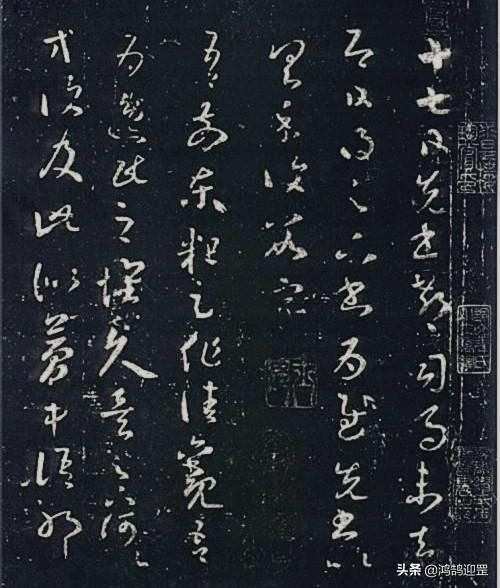 十七日先書郗司馬未去
即日得足下書為慰先書以
具示復數字
吾前東粗足作佳觀吾
為逸民之懷久矣足下何以
等復及此似夢中語耶
头条 @鸿鹄迎罡